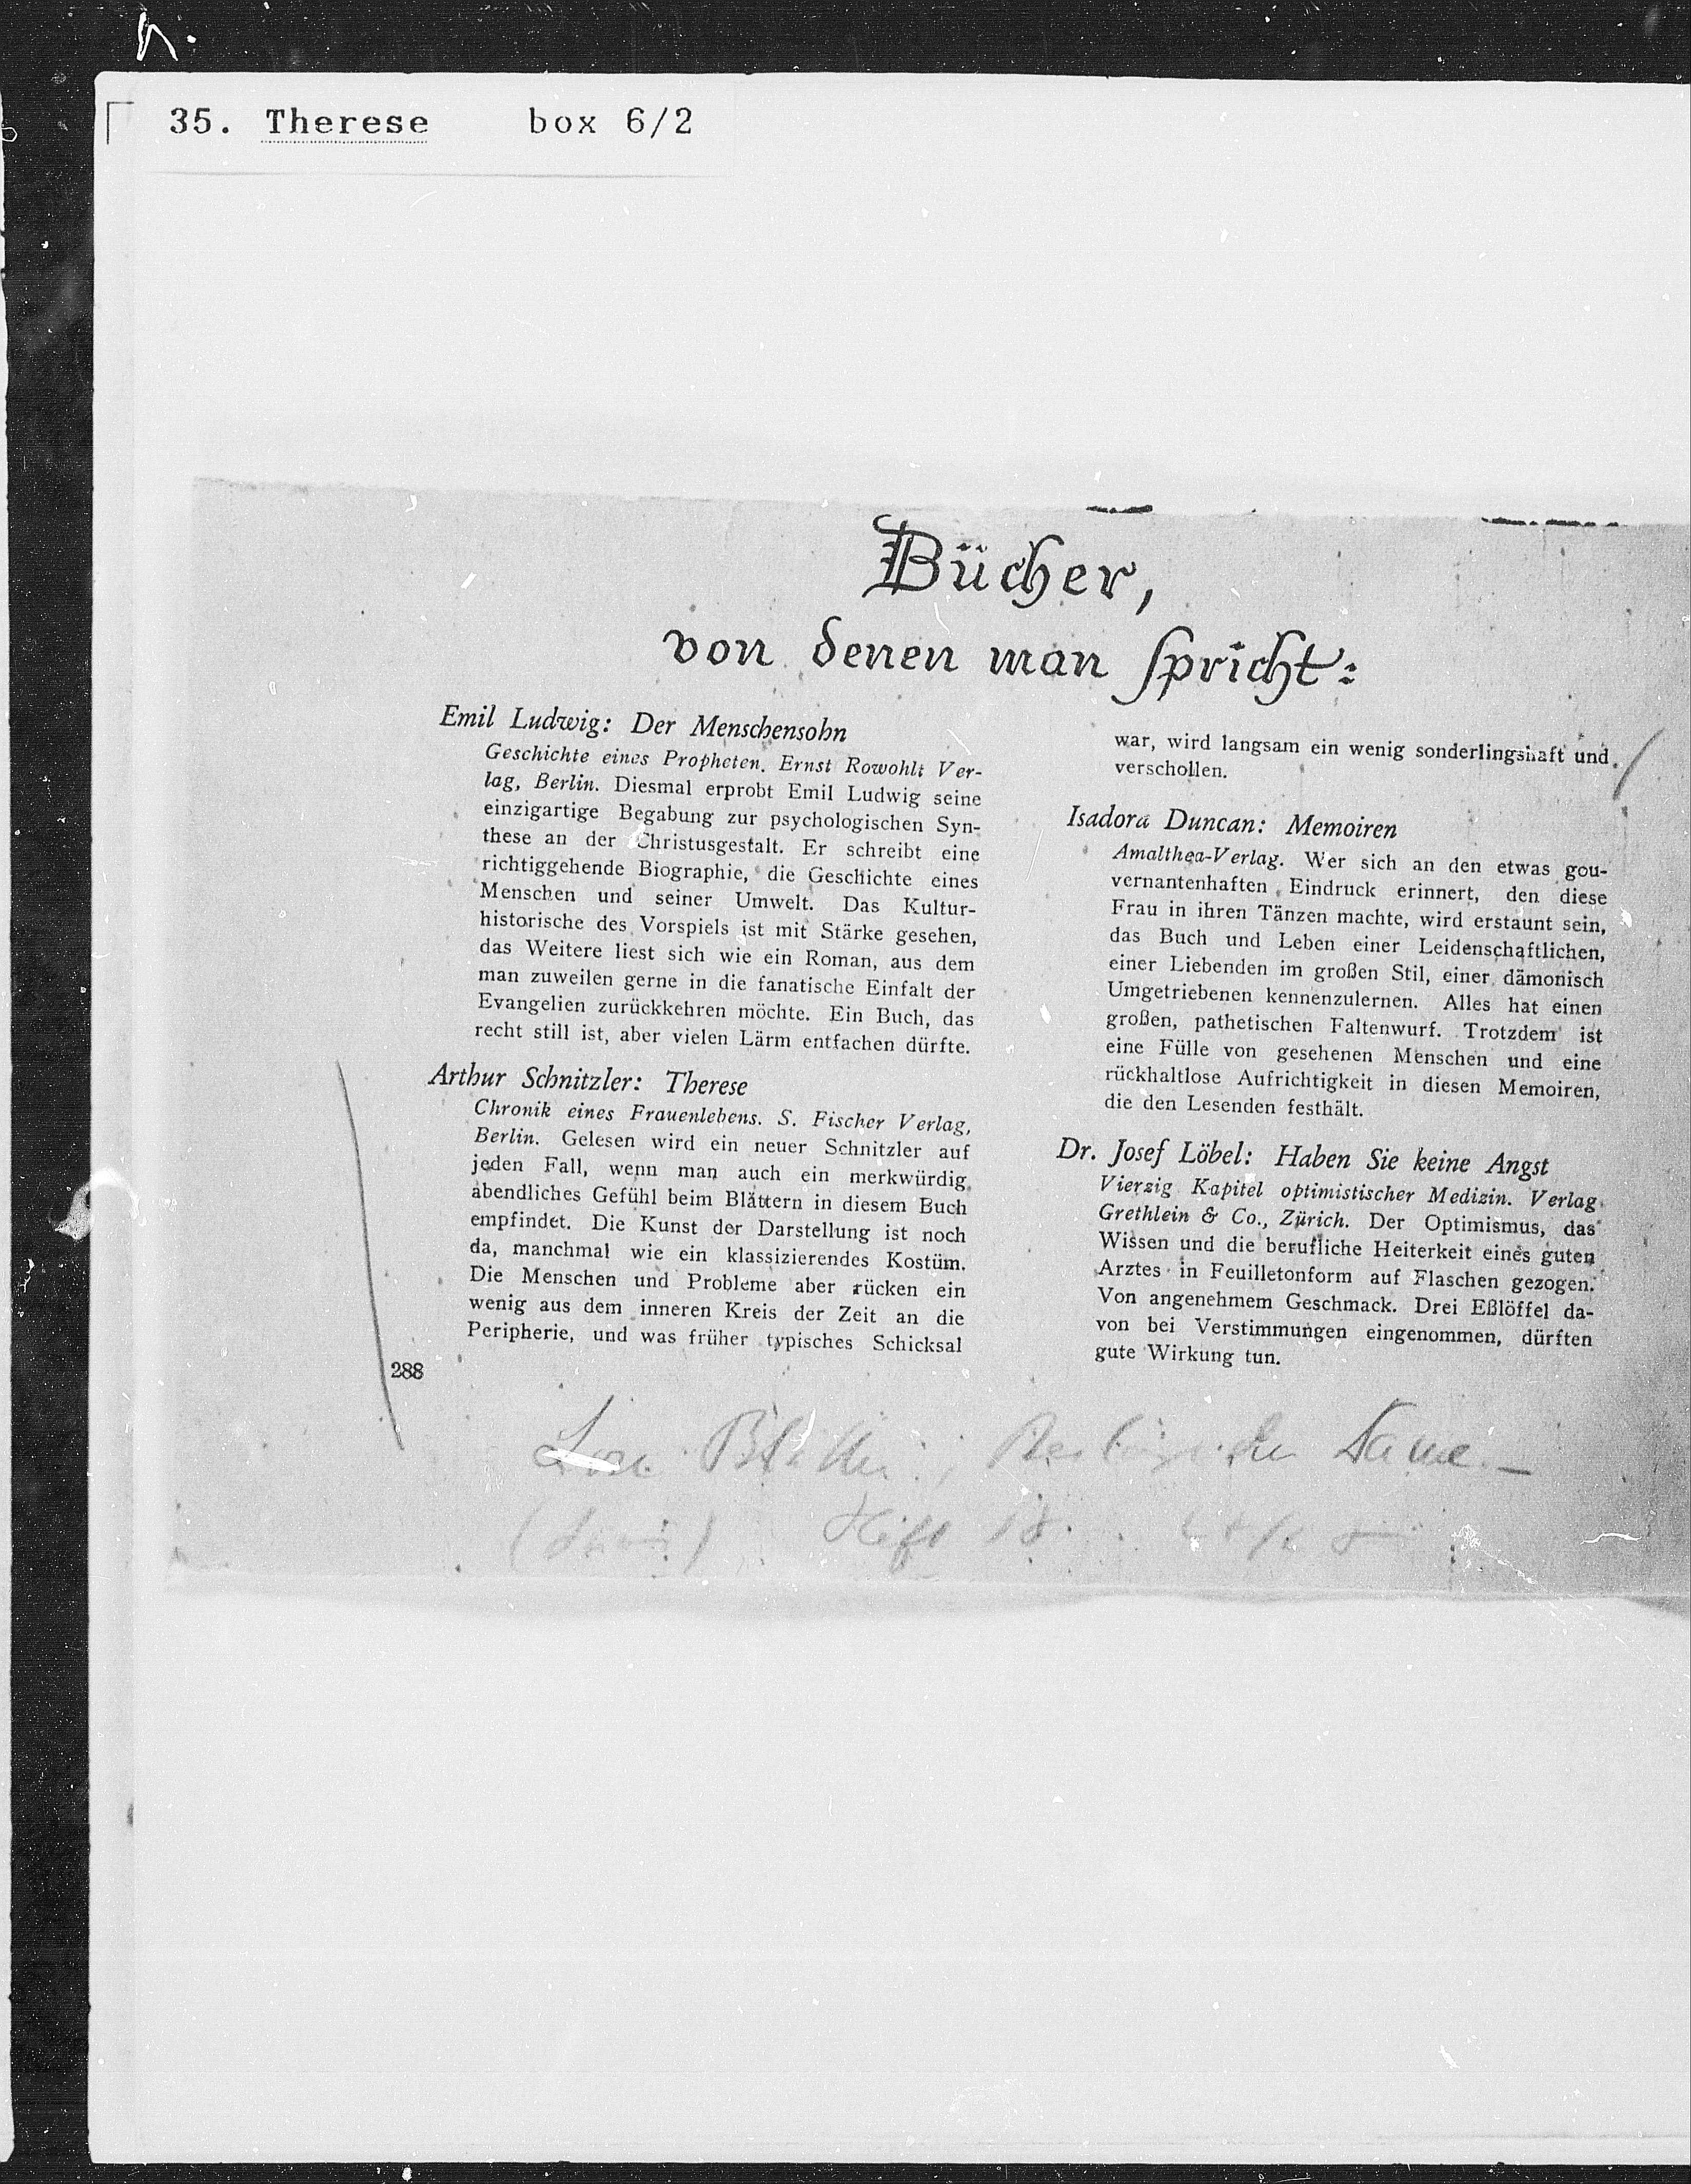 35. Therese box 6/2
Bücher,
von denen man spricht:
Emil Ludwig: Der Menschensohn
Geschichte eines Propheten. Ernst Rowohlt Ver-
lag, Berlin. Diesmal erprobt Emil Ludwig seine
einzigartige Begabung zur psychologischen Syn-
these an der Christusgestalt. Er schreibt eine
richtiggehende Biographie, die Geschichte eines
Menschen und seiner Umwelt. Das Kultur-
historische des Vorspiels ist mit Stärke gesehen,
das Weitere liest sich wie ein Roman, aus dem
man zuweilen gerne in die fanatische Einfalt der
Evangelien zurückkehren möchte. Ein Buch, das
recht still ist, aber vielen Lärm entfachen dürfte.
Arthur Schnitzler: Therese
Chronik eines Frauenlebens. S. Fischer Verlag,
Berlin. Gelesen wird ein neuer Schnitzler auf
jeden Fall, wenn man auch ein merkwürdig
abendliches Gefühl beim Blättern in diesem Buch
empfindet. Die Kunst der Darstellung ist noch
da, manchmal wie ein klassizierendes Kostüm.
Die Menschen und Probleme aber rücken ein
wenig aus dem inneren Kreis der Zeit an die
Peripherie, und was früher typisches Schicksal
288
war, wird langsam ein wenig sonderlingshaft und
verschollen.
Isadora Duncan: Memoiren
Amalthea-Verlag. Wer sich an den etwas gou-
vernantenhaften Eindruck erinnert, den diese
Frau in ihren Tänzen machte, wird erstaunt sein,
das Buch und Leben einer Leidenschaftlichen,
einer Liebenden im großen Stil, einer dämonisch
Umgetriebenen kennenzulernen. Alles hat einen
großen, pathetischen Faltenwurf. Trotzdem ist
eine Fülle von gesehenen Menschen und eine
rückhaltlose Aufrichtigkeit in diesen Memoiren,
die den Lesenden festhält.
Dr. Josef Löbel: Haben Sie keine Angst
Vierzig Kapitel optimistischer Medizin. Verlag
Grethlein & Co., Zürich. Der Optimismus, das
Wissen und die berufliche Heiterkeit eines guten
Arztes in Feuilletonform auf Flaschen gezogen.
Von angenehmem Geschmack. Drei Eßlöffel da-
von bei Verstimmungen eingenommen, dürften
gute Wirkung tun.
Dame
Heft 18.